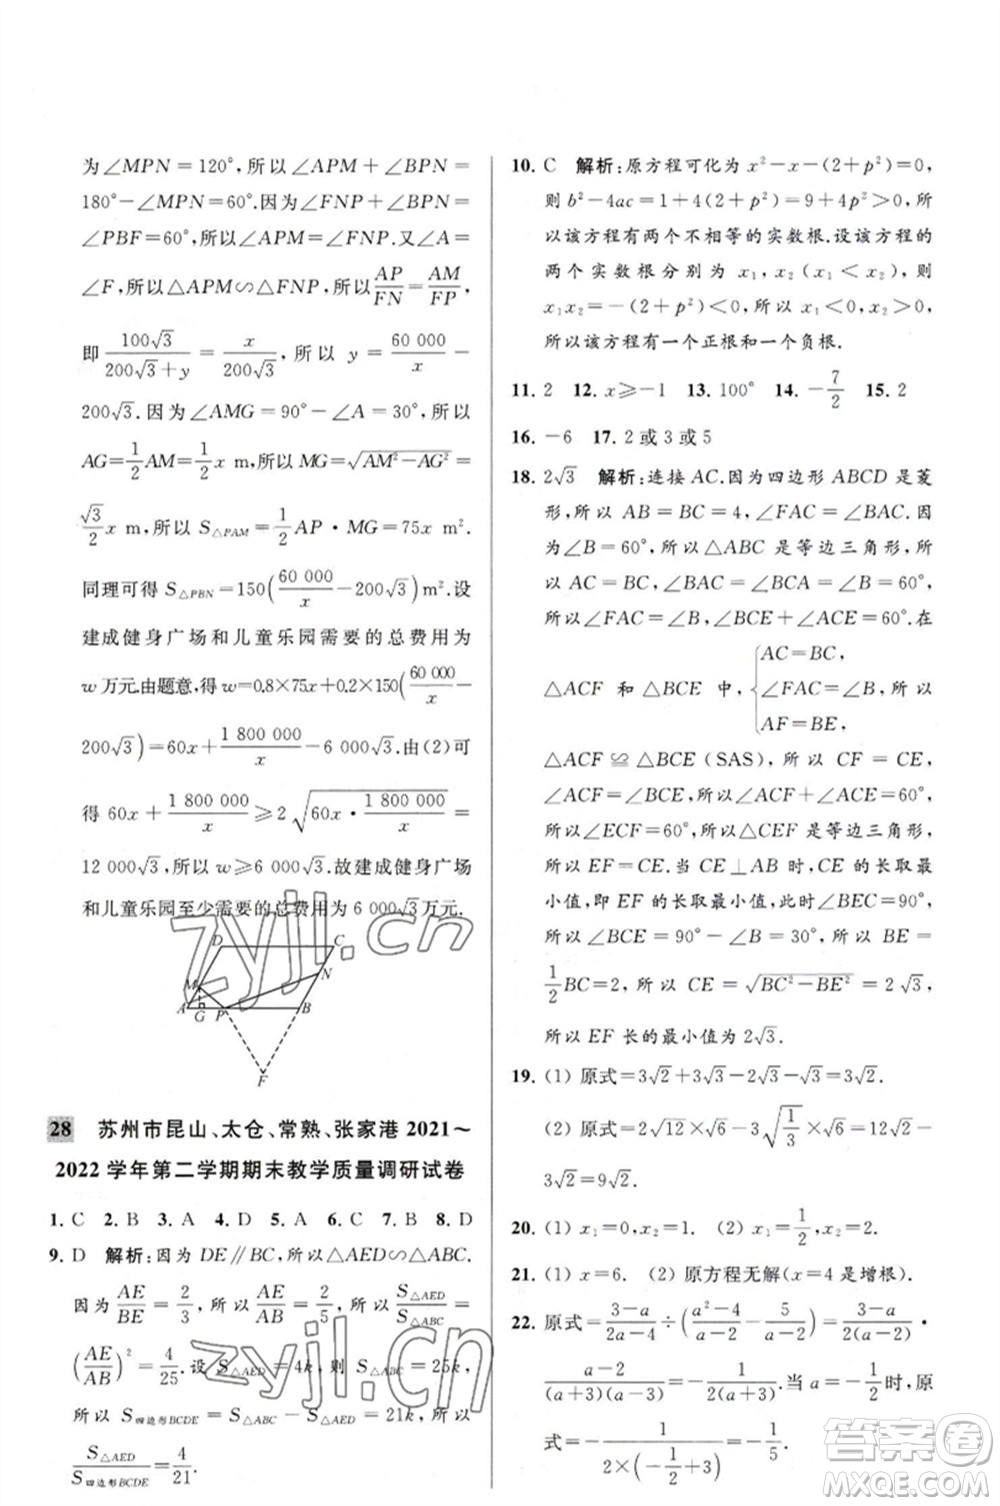 为∠MPN=120°,所以∠APM+∠BPF=
180°-∠MPN=60°.因为∠FNP+∠BPF=
∠PBF=60°,所以∠APM=∠FNP.又∠A=
∠F,所以△APM∽△FNP,所以AP/FN=AM/FP,
即100√3/(200√3+y)=x/(200√3),所以y=60 000/x-
200√3.因为∠AMG=90°-∠A=30°,所以
AG=1/2AM=1/2x m,所以MG=√(AM²-AG²)=
√3/2x m,所以S△PAM=1/2AP·MG=75x m².
同理可得S△PBN=150(60 000/x-200√3)m².设
建成健身广场和儿童乐园需要的总费用为
w万元.由题意,得w=0.8×75x+0.2×150(60 000/x-
200√3)=60x+1 800 000/x-6 000√3.由(2)可
得60x+1 800 000/x≥2√(60x·1 800 000/x)=
12 000√3,所以w≥6 000√3.故建成健身广场
和儿童乐园至少需要的总费用为6 000√3万元.
D C
M N
A G P B
F
28 苏州市昆山、太仓、常熟、张家港2021～
2022学年第二学期期末教学质量调研试卷
1. C 2. B 3. A 4. D 5. A 6. C 7. B 8. D
9. D 解析:因为DE∥BC,所以△AED∽△ABC.
因为AE/BE=2/3,所以AE/AB=2/5,所以S△AED/S△ABC=
(AE/AB)²=4/25.设S△AED=4k,则S△ABC=25k,
所以S四边形BCDE=S△ABC-S△AED=21k,所以
S△AED/S四边形BCDE=4/21.
10. C 解析:原方程可化为x²-x-(2+p²)=0,
则b²-4ac=1+4(2+p²)=4p²+9>0,所
以该方程有两个不相等的实数根.设该方程的
两个实数根分别为x₁,x₂(x₁<x₂),则
x₁x₂=-(2+p²)<0,所以x₁<0,x₂>0,
所以该方程有一个正根和一个负根.
11. 2 12. x≥-1 13. 100° 14. -7/2 15. 2
16. -6 17. 2或3或5
18. 2√3 解析:连接AC.因为四边形ABCD是菱
形,所以AB=BC=4,∠FAC=∠BAC.因
为∠B=60°,所以△ABC是等边三角形,所
以AC=BC,∠BAC=∠BCA=∠B=60°,
所以∠FAC=∠B,∠BCE+∠ACE=60°.在
△ACF和△BCE中,{AC=BC,∠FAC=∠B,AF=BE,所以
△ACF≌△BCE(SAS),所以CF=CE,
∠ACF=∠BCE,所以∠ACF+∠ACE=60°,
所以∠ECF=60°,所以△CEF是等边三角形,
所以EF=CE.当CE⊥AB时,CE的长取最
小值,即EF的长取最小值,此时∠BEC=90°,
所以∠BCE=90°-∠B=30°,所以BE=
1/2BC=2,所以CE=√(BC²-BE²)=2√3,
所以EF长的最小值为2√3.
19. (1) 原式=3√2+3√2-3√2=3√2.
(2) 原式=3√2+6√2×√3×√(1/3)=3√2+
6√2=9√2.
20. (1) x₁=0,x₂=1. (2) x₁=1/2,x₂=2.
21. (1) x=6. (2) 原方程无解(x=4是增根).
22. 原式=(3-a)/(2a-4)÷((a²-4)/(a-2)-5/(a-2))=(3-a)/(2(a-2))·
(a-2)/((a+3)(a-3))=-1/(2(a+3)).当a=-1/2时,原
式=-1/(2×(-1/2+3))=-1/5.
zyjl.cn
zyjl.cn
答案圈
MXQE.COM